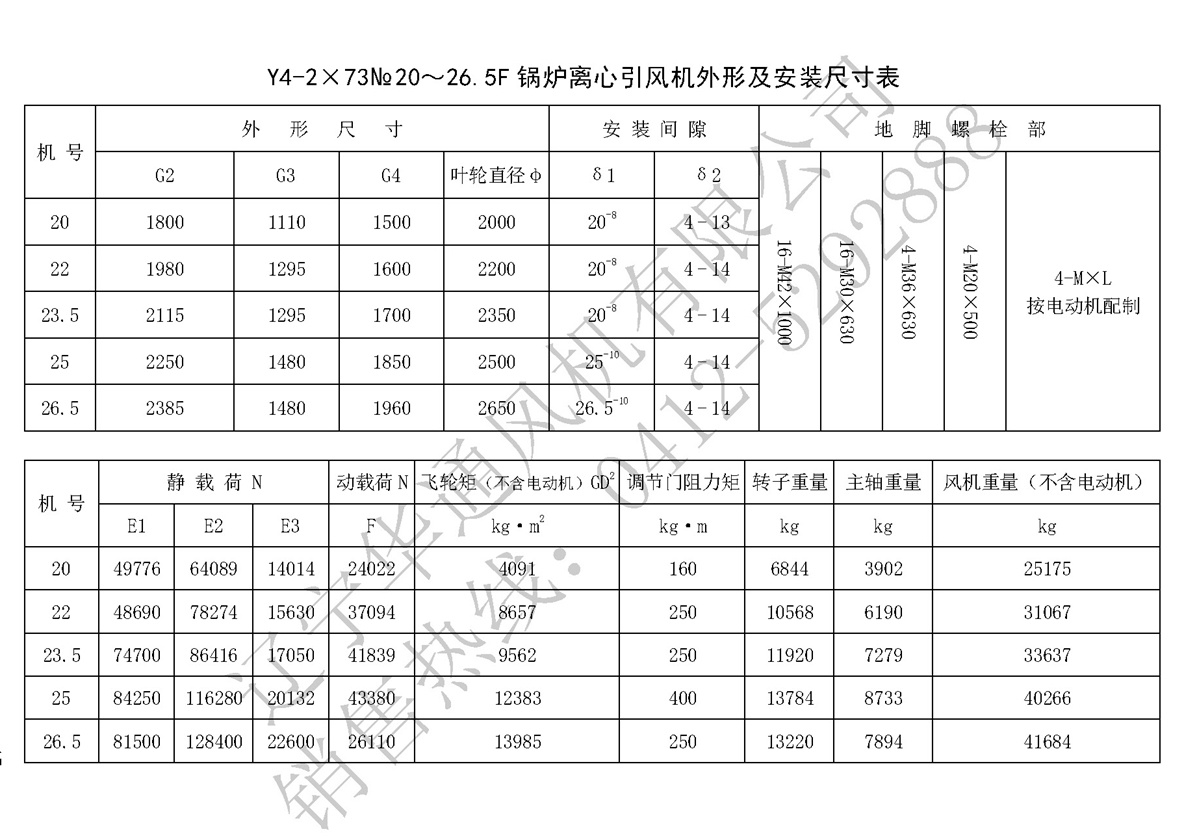 Y4-2×73№20～26.5F 锅炉离心引风机外形及安装尺寸表
机号 外形尺寸 安装间隙 地脚螺栓部
G2 G3 G4 叶轮直径φ δ1 δ2
20 1800 1110 1500 2000 20-8 4-13
22 1980 1295 1600 2200 20-8 4-14
23.5 2115 1295 1700 2350 20-8 4-14
25 2250 1480 1850 2500 25-10 4-14
26.5 2385 1480 1960 2650 26.5-10 4-14
16-M42×1000
16-M30×630
4-M36×630
4-M20×500
4-M×L
按电动机配制
机号 静载荷N 动载荷N 飞轮矩(不含电动机)GD² 调节门阻力矩 转子重量 主轴重量 风机重量(不含电动机)
E1 E2 E3 F kg·m² kg·m kg kg kg
20 49776 64089 14014 24022 4091 160 6844 3902 25175
22 48690 78274 15630 37094 8657 250 10568 6190 31067
23.5 74700 86416 17050 41839 9562 250 11920 7279 33637
25 84250 116280 20132 43380 12383 400 13784 8733 40266
26.5 81500 128400 22600 26110 13985 250 13220 7894 41684
辽宁华通风机有限公司
销售热线：0412-5292888